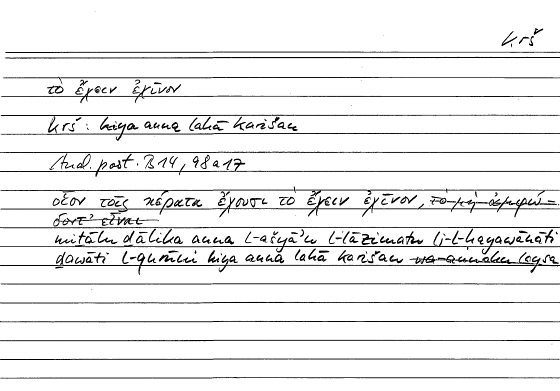 krš
τὸ ἔχειν ἐχῖνον
krš : hiya anna lahā karišan
And. post. B 14, 98 a 17
οἷον τοῖς κέρατα ἔχουσι τὸ ἔχειν ἐχῖνον, τὸ μὴ ἀμφώ-
δοντ' εἶναι
miṯālu ḏālika anna l-ašyā'u l-lāzimatu li-l-ḥayawānāti
ḏawāti l-qurūni hiya anna lahā karišan wa-annahu laysa